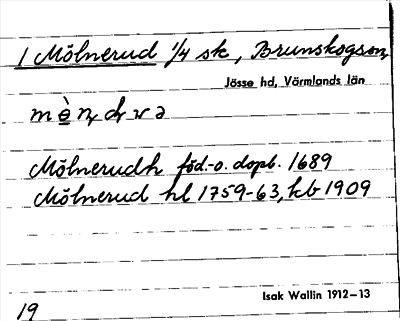 1 Mölnerud 1/4 sk, Brunskogs sn,
Jösse hd, Värmlands län
Mölnerudh föd.-o. dopb. 1689
Mölnerud hl 1759-63, kb 1909
Isak Wallin 1912-13
19